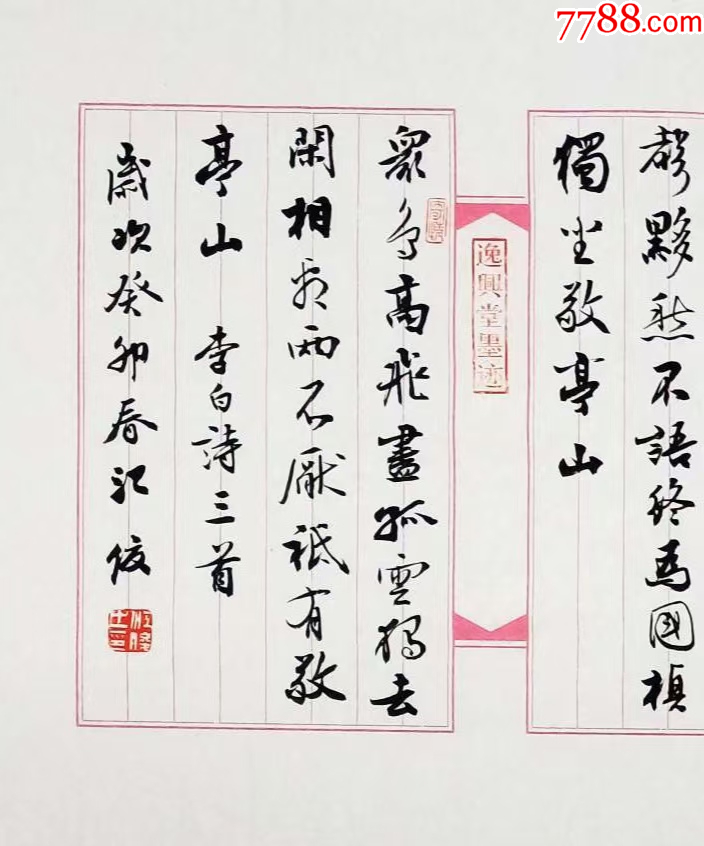 聲默然不語終為國楨
獨坐敬亭山
逸興堂墨迹
眾鳥高飛盡孤雲獨去
閑相看兩不厭祇有敬
亭山 李白詩三首
歲次癸卯春江俊
7788.com